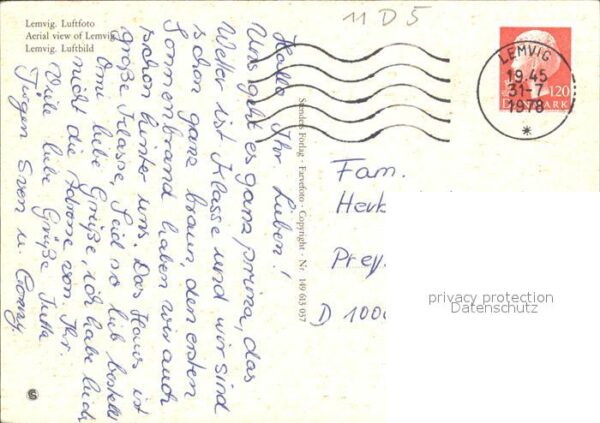 Lemvig. Luftfoto
Aerial view of Lemvig
Lemvig. Luftbild
11 D 5
LEMVIG
19.45
31-7
1978
120
DANMARK
Hallo Ihr Lieben!
Uns geht es ganz prima, das
Wetter ist Klasse und wir sind
schon ganz braun, den ersten
Sonnenbrand haben wir auch
schon hinter uns. Das Haus ist
große Klasse, Seid so lieb bestellt
Omi liebe Grüße, ich habe
nicht die Adresse von Ihr.
Viele liebe Grüße Jutta
Jürgen Sven u. Conny
Stenders Forlag - Farvefoto - Copyright - Nr. 149 613 057
Fam.
Herb
Prey.
D 1000
privacy protection
Datenschutz